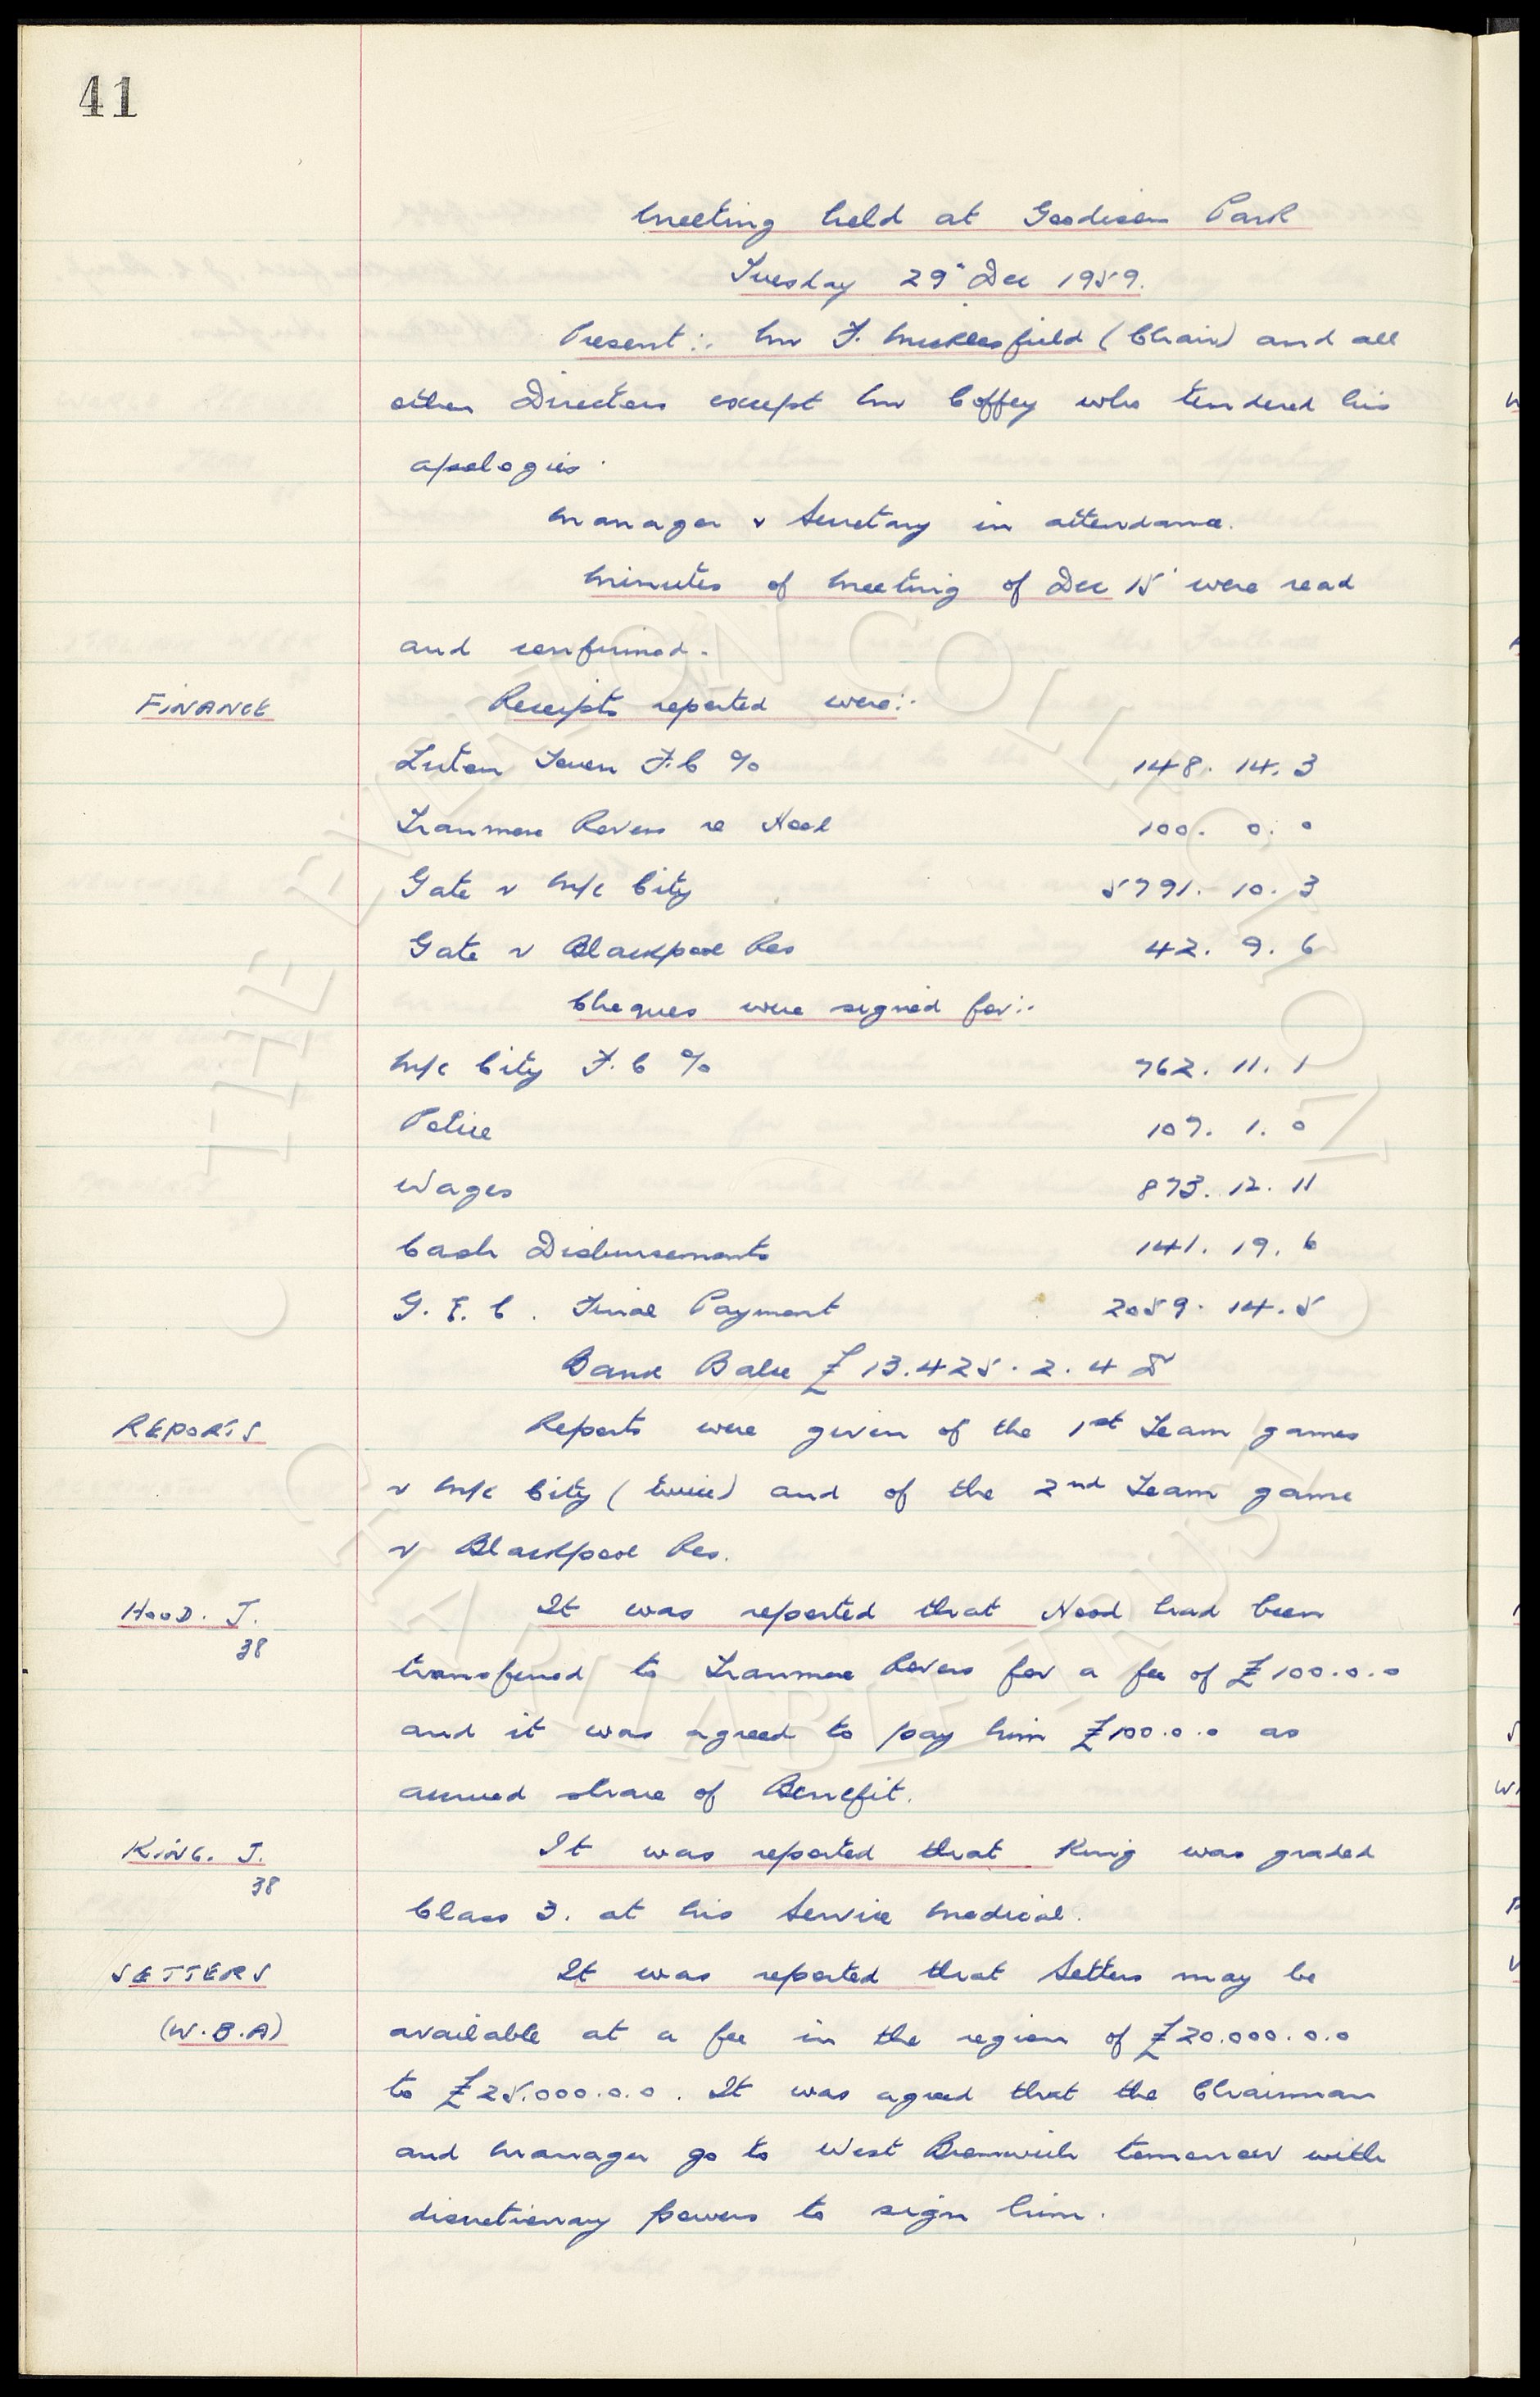 41
Meeting held at Goodison Park
Tuesday 29" Dec 1959.
Present:. Mr F. Micklesfield (Chair) and all
other Directors except Mr Coffey who tendered his
apologies.
Manager & Secretary in attendance.
Minutes of Meeting of Dec 15' were read
and confirmed.
FINANCE Receipts reported were:.
Luton Town F.C % 148. 14. 3
Tranmere Rovers re Hood 100. 0. 0
Gate v M/c City 5791. 10. 3
Gate v Blackpool Res 42. 9. 6
Cheques were signed for:.
M/c City F.C % 762. 11. 1
Police 107. 1. 0
Wages 873. 12. 11
Cash Disbursements 141. 19. 6
G.E.C. Final Payment 2059. 14. 5
Bank Balce £13.425. 2. 4 Dr
REPORTS Reports were given of the 1st Team games
v M/c City (twice) and of the 2nd Team game
v Blackpool Res.
HOOD. J. It was reported that Hood had been
38
transferred to Tranmere Rovers for a fee of £100.0.0
and it was agreed to pay him £100.0.0 as
accrued share of Benefit.
KING. J. It was reported that King was graded
38
Class 3. at his Service Medical.
SETTERS It was reported that Setters may be
(W.B.A) available at a fee in the region of £20.000.0.0
to £25.000.0.0. It was agreed that the Chairman
and Manager go to West Bromwich tomorrow with
discretionary powers to sign him.
THE EVERTON COLLECTION
CHARITABLE TRUST